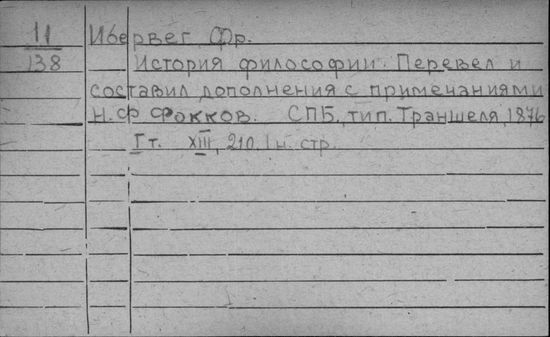 11 Ибервег, Фр.
138 История философии. Перевел и
составил дополнения с примечаниями
Н. Ф Фокков. СПБ, тип. Траншеля, 1876
I т. XIII, 210, 1 н. стр.